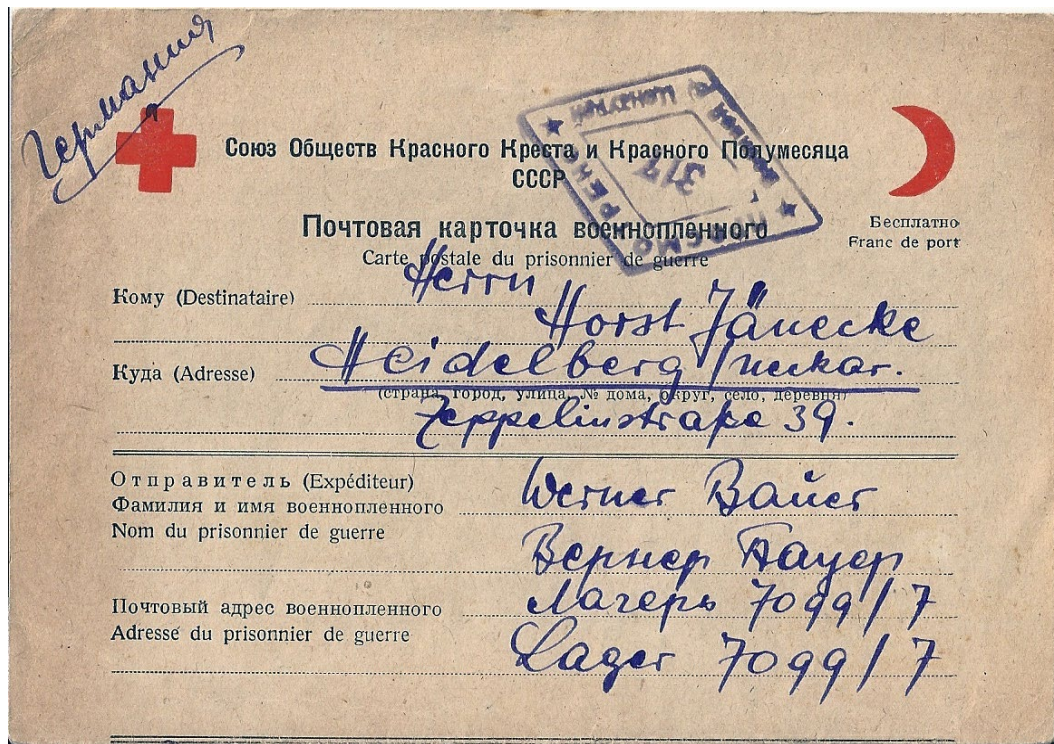 Германия
Союз Обществ Красного Креста и Красного Полумесяца
СССР
ПРОСМОТРЕНО
военной цензурой
317
Почтовая карточка военнопленного
Carte postale du prisonnier de guerre
Бесплатно
Franc de port
Кому (Destinataire) Herrn
Horst Jänecke
Куда (Adresse) Heidelberg/Neckar.
(страна, город, улица, № дома, округ, село, деревня)
Zeppelinstraße 39.
Отправитель (Expéditeur)
Фамилия и имя военнопленного Werner Bauer
Nom du prisonnier de guerre
Вернер Бауер
Почтовый адрес военнопленного Лагерь 7099/7
Adresse du prisonnier de guerre
Lager 7099/7